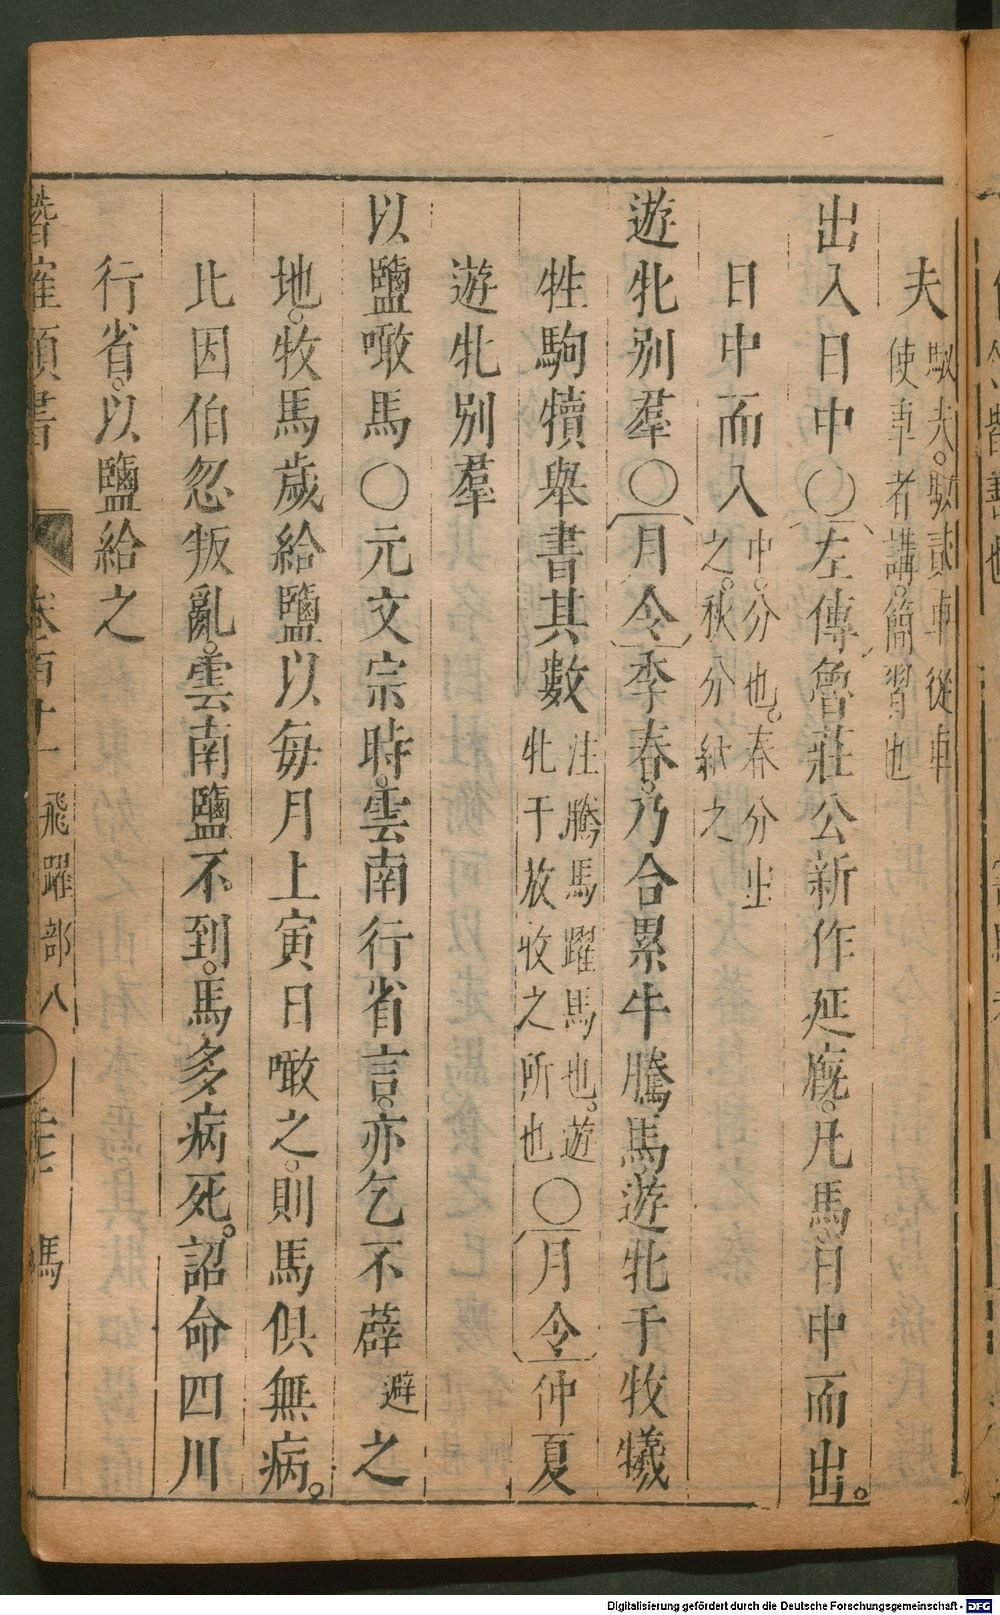 夫馭夫。馭貳車從車
使車者講。簡習也
出入日中○左傳魯莊公新作延廐。凡馬日中而出。
日中而入中。分也。春分出
之。秋分納之
遊牝别羣○月令季春。乃合累牛騰馬遊牝于牧犧
牲駒犢舉書其數注騰馬躍馬也。遊
牝于放牧之所也○月令仲夏
遊牝别羣
以鹽啖馬○元文宗時。雲南行省言。亦乞不薛避之
地。牧馬歲給鹽以每月上寅日啖之。則馬俱無病。
比因伯忽叛亂。雲南鹽不到。馬多病死。詔命四川
行省。以鹽給之
潛確類書 卷百十一 飛躍部八 馬
Digitalisierung gefördert durch die Deutsche Forschungsgemeinschaft - DFG